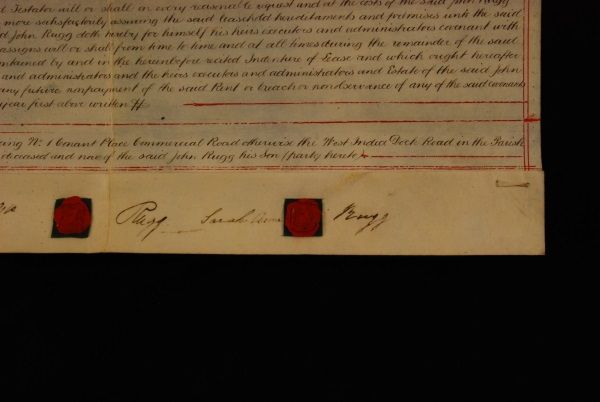 Testator will or shall in every reasonable request and at the costs of the said John Rugg
more satisfactorily assuring the said leasehold hereditaments and premises unto the said
d John Rugg doth hereby for himself his heirs executors and administrators covenant with
assigns will or shall from time to time and at all times during the remainder of the said
ntained by and in the hereinbefore recited Indenture of Lease and which ought hereafter
and administrators and the heirs executors and administrators and Estate of the said John
any future nonpayment of the said Rent or breach or nonobservance of any of the said covenants
year first above written
ang No. 1 Tenant Place Commercial Road otherwise the West India Dock Road in the Parish
deceased and now of the said John Rugg his Son (party hereto)
Rugg Sarah Anne Rugg